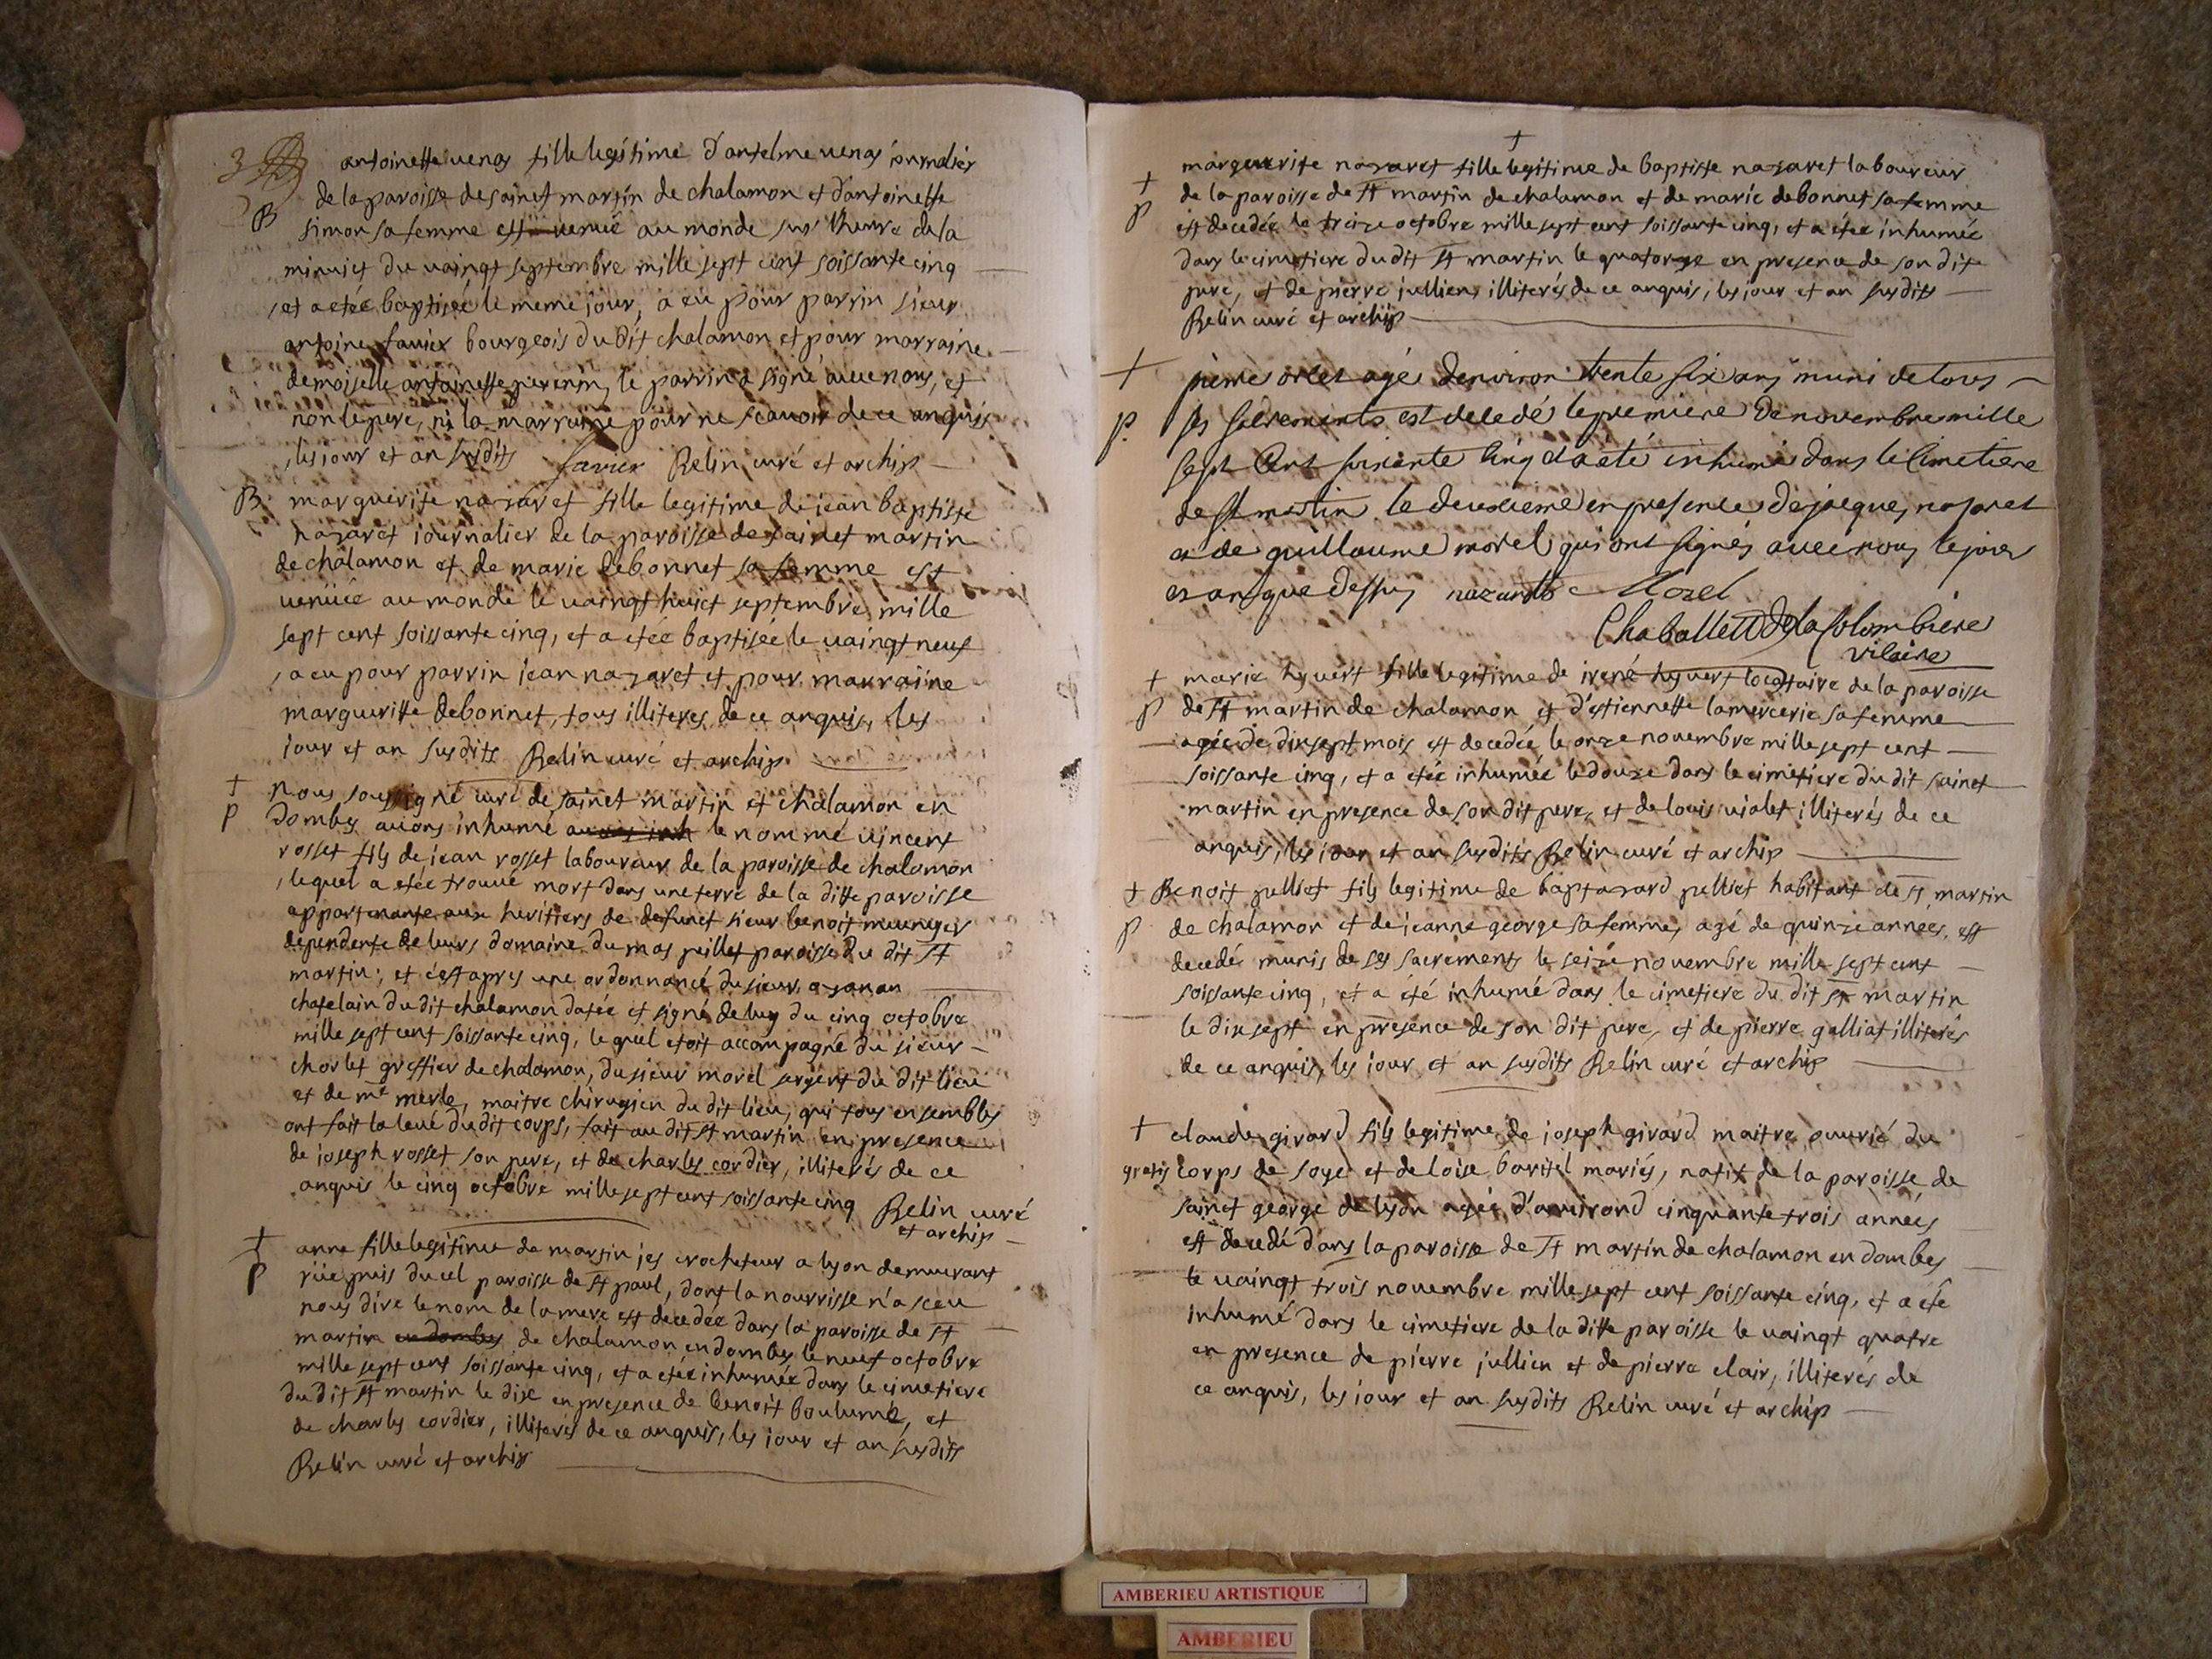 3
antoinette venas fille legitime d'antelme venas journalier
de la paroisse de sainct martin de chalamon et d'antoinette
B
simon sa femme est venuë au monde sur l'heure de la
minuict du vaingt septembre mille sept cent soissante cinq
, et a etée baptisée le meme jour, a eu pour parrin sieur
antoine favier bourgeois du dit chalamon et pour marraine
demoiselle antoinette le parrin a signé avec nous, et
non le pere, ni la marraine pour ne scavoir de ce anquis
, les jour et an susdits favier Relin curé et archip
B marguerite nazaret fille legitime de jean baptiste
nazaret iournalier de la paroisse de sainct martin
de chalamon et de marie debonnet sa femme est
venuée au monde le vaingt huict septembre mille
sept cent soissante cinq, et a etée baptisée le vaingt neuf
, a eu pour parrin jean nazaret et pour marraine
marguerite debonnet, tous illiteres de ce anquis, les
iour et an susdits Relin curé et archip
+ nous soussigné curé de sainct martin et chalamon en
p dombes avions inhumé le nommé vincent
rosset fils de jean rosset laboureur de la paroisse de chalamon
, lequel a etée trouvé mort dans une terre de la ditte paroisse
appartenante aux heritiers de defunct sieur benoit
dependente de leurs domaine du mas peillet paroisse du dit st
martin, et c'est apres une ordonnance du sieur
chatelain du dit chalamon datée et signé de luy du cinq octobre
mille sept cent soissante cinq, le quel etoit accompagné du sieur
chorlet greffier de chalamon, du sieur morel sergent du dit lieu
et de mr merle, maitre chirugien du dit lieu, qui tous ensembles
ont fait la levé du dit corps, fait au dit st martin en presence
de joseph rosset son pere, et de charles cordier, illiterés de ce
anquis le cinq octobre mille sept cent soissante cinq Relin curé
et archip
+ anne fille legitime de martin jes crocheteur a lyon demeurant
p rüe puis du cel paroisse de st paul, dont la nourrisse n'a sceu
nous dire le nom de la mere est decedée dans la paroisse de st
martin en dombes de chalamon en dombes le neuf octobre
mille sept cent soissante cinq, et a etée inhumée dans le cimetiere
du dit st martin le dix en presence de benoit boulumé, et
de charles cordier, illiterés de ce anquis, les iour et an susdits
Relin curé et archip
+
marguerite nazaret fille legitime de baptiste nazaret laboureur
+ de la paroisse de st martin de chalamon et de marie debonnet sa femme
p est decedée le treize octobre mille sept cent soissante cinq, et a etée inhumée
dans le cimetiere du dit st martin le quatorze en presence de son dit
pere, et de pierre jullien, illiterés de ce anquis, les jour et an susdits
Relin curé et archip
+ pierre orlet agé denviron trente six ans muni de tous
p. ses sacrements est decedé le premiere de novembre mille
sept cent soixante cinq et a été inhumé dans le cimetiere
de st martin le deuxieme en presence de jacque nasaret
et de guillaume morel qui ont signés avec nous le jour
et an que dessus nazarette Morel
Chaballett De la Colombiere
vicaire
+ marie huvert fille legitime de irené huvert locataire de la paroisse
p de st martin de chalamon et d'estiennette lamercerie sa femme
agée de dixsept mois est decedée le onze novembre mille sept cent
soissante cinq, et a etée inhumée le douze dans le cimetiere du dit sainct
martin en presence de son dit pere, et de louis violet illiterés de ce
anquis, les iour et an susdits Relin curé et archip
+ Benoit pelliet fils legitime de baptazard pelliet habitant de st martin
p de chalamon et de jeanne george sa femme, agé de quinze années, est
decedé munis de ses sacrements le seize novembre mille sept cent
soissante cinq, et a été inhumé dans le cimetiere du dit st martin
le dix sept en presence de son dit pere, et de pierre galliat illiterés
de ce anquis, les iour et an susdits Relin curé et archip
+ claude girard fils legitime de joseph girard maitre ouvrié du
gratis corps de soye et de loise baritel mariés, natif de la paroisse de
sainct george de lyon agée d'anvirond cinquante trois années
est decedé dans la paroisse de st martin de chalamon en dombes
le vaingt trois novembre mille sept cent soissante cinq, et a été
inhumé dans le cimetiere de la ditte paroisse le vaingt quatre
en presence de pierre jullien et de pierre clair, illiterés de
ce anquis, les iour et an susdits Relin curé et archip
AMBERIEU ARTISTIQUE
AMBERIEU